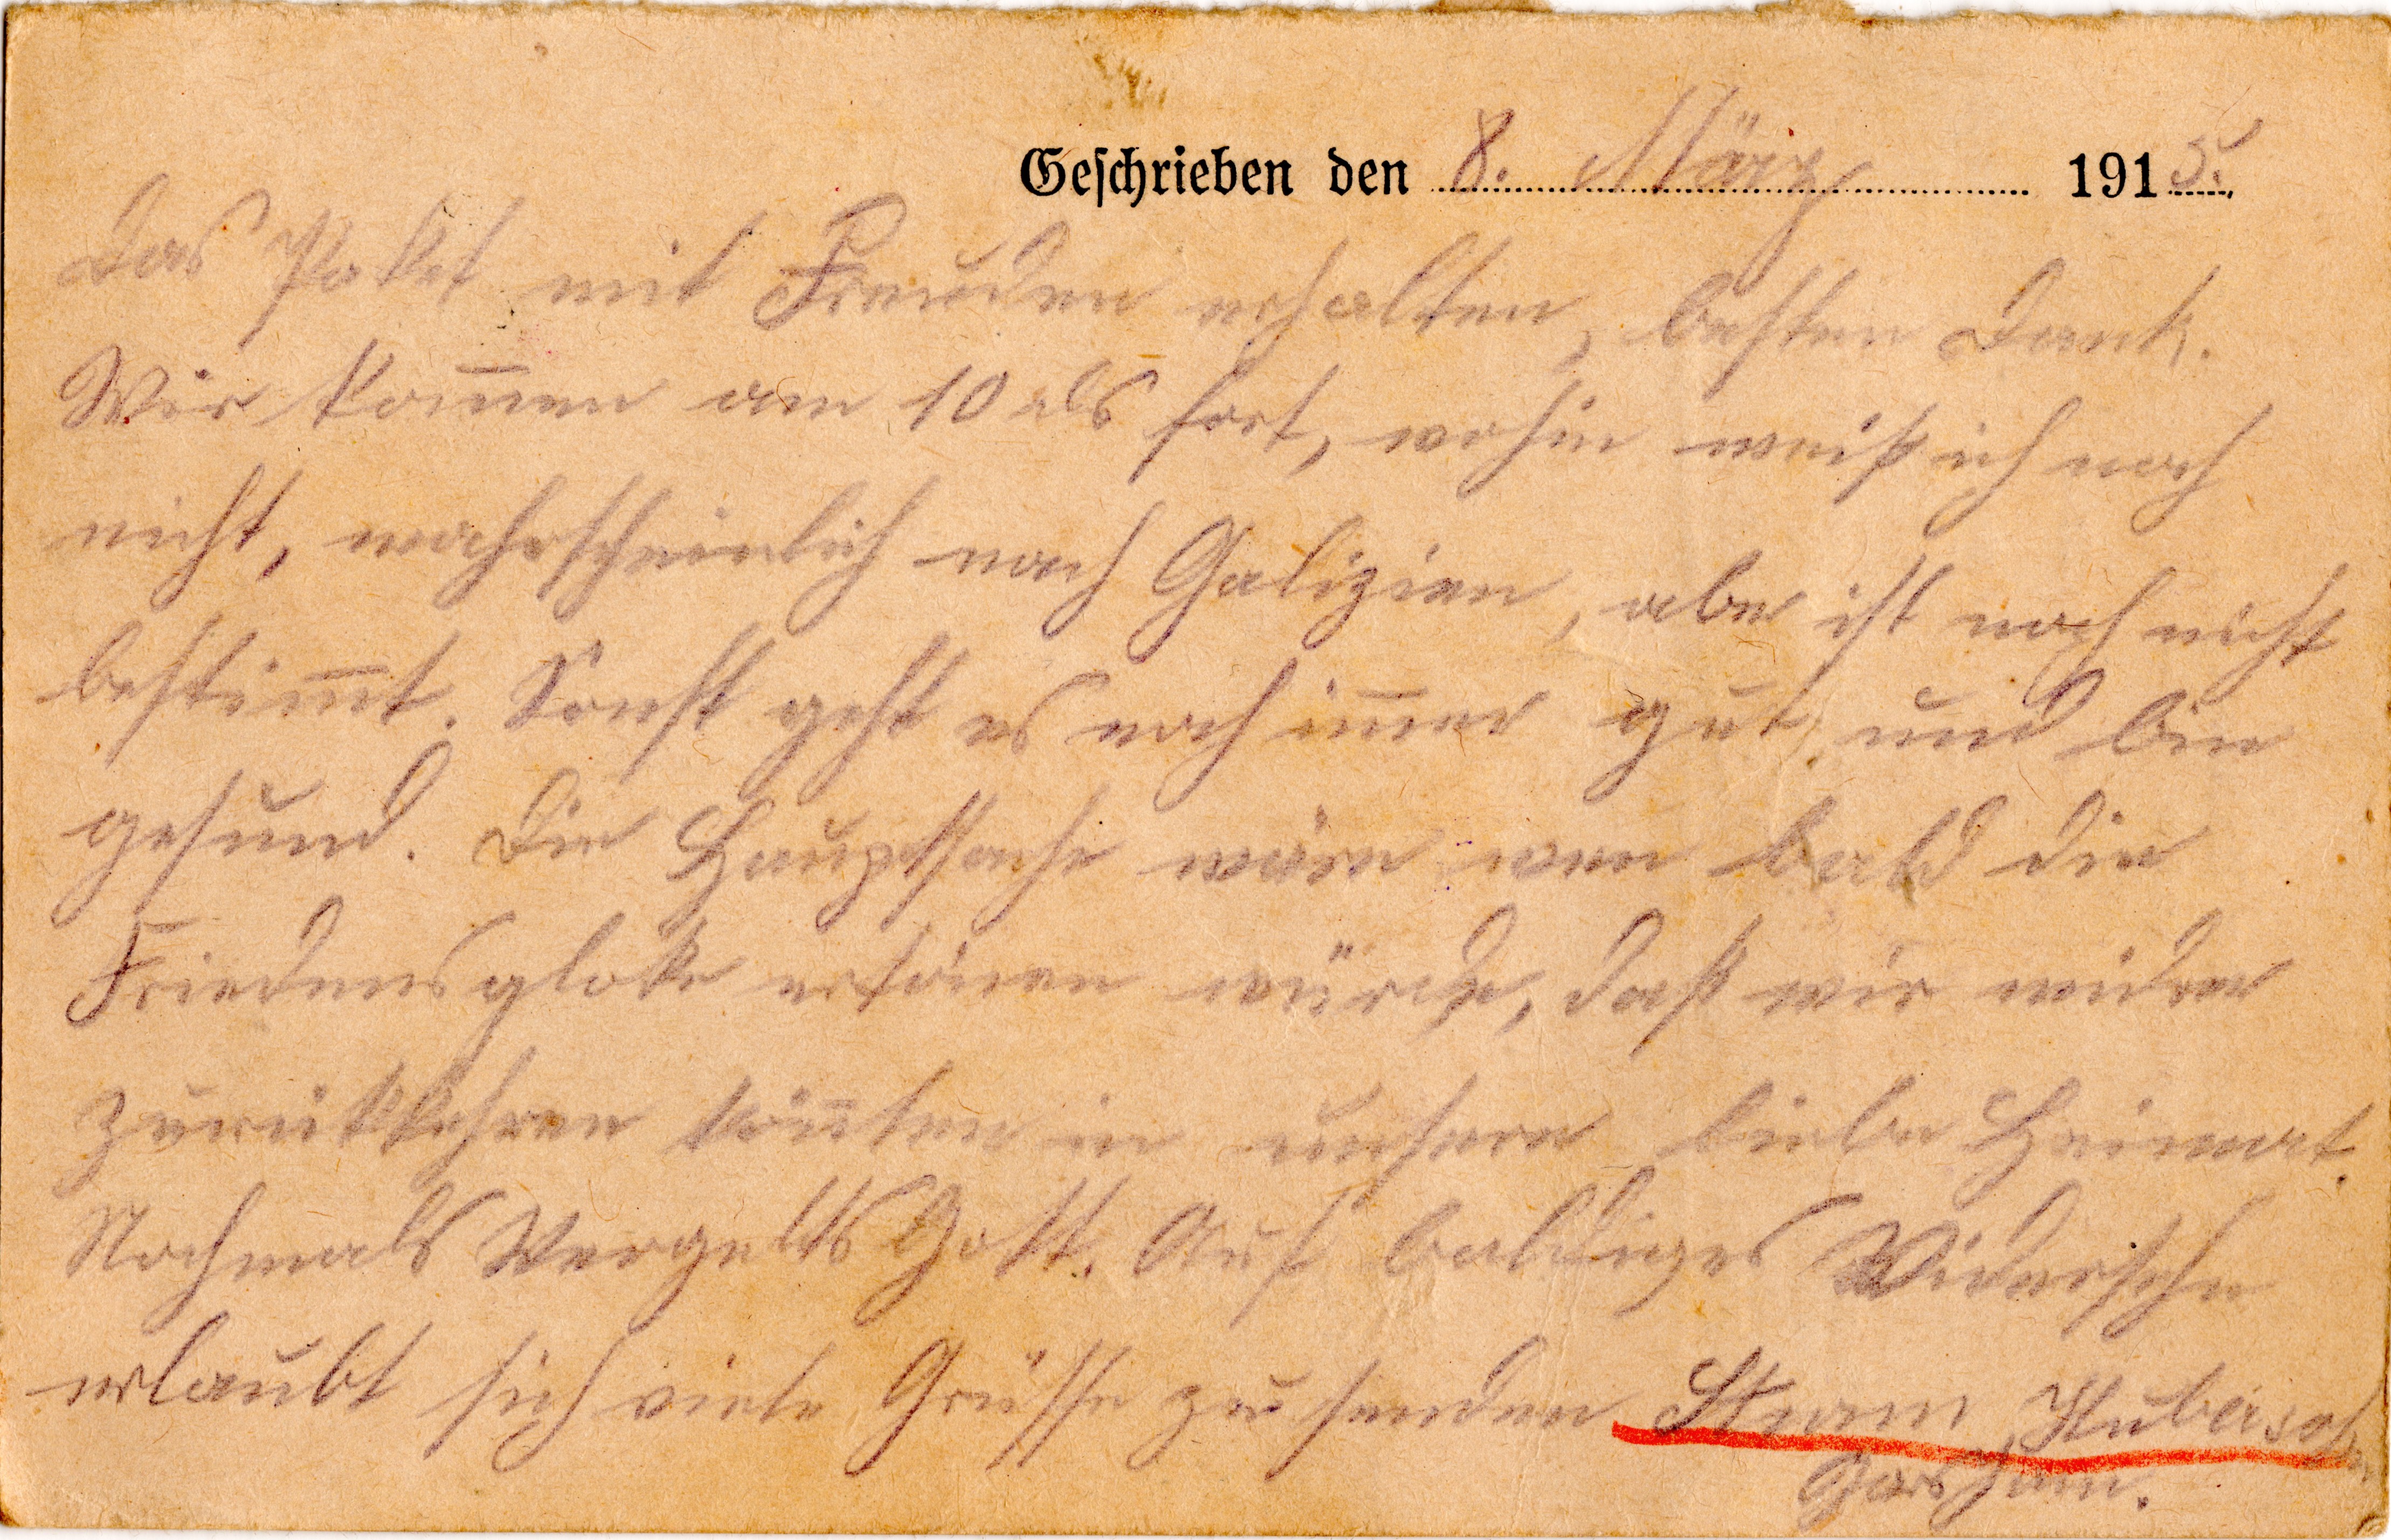 Geschrieben den 8. März 1915.
Das Paket mit Freuden erhalten, besten Dank.
Wir kom̅en am 10 als fort, wohin weiß ich noch
nicht, wahrscheinlich nach Galizien, aber ist noch nicht
bestim̅t. Sonst geht es noch im̅er gut und bin
gesund. Die Hauptsache wäre wen bald die
Friedensgloke ertönen würde, daß wir wider
zurükkehren kön̅ten in unsere liebe Heimat.
Nochmals Vergelts Gott. Auf baldiges Widersehn
erlaubt sich viele Grüsse zu senden Huber
Garsham.